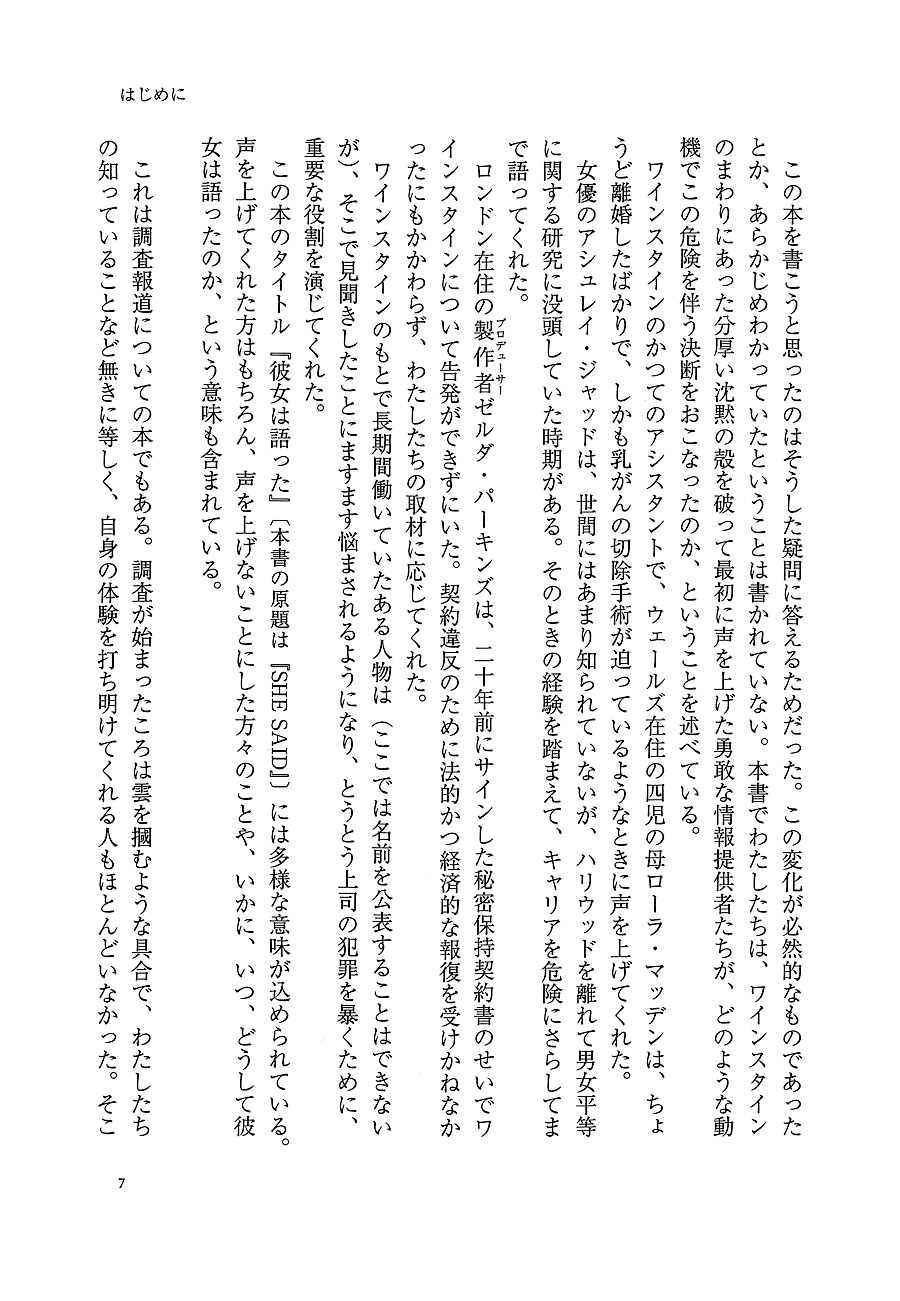 はじめに
この本を書こうと思ったのはそうした疑問に答えるためだった。この変化が必然的なものであった
とか、あらかじめわかっていたということは書かれていない。本書でわたしたちは、ワインスタイン
のまわりにあった分厚い沈黙の殻を破って最初に声を上げた勇敢な情報提供者たちが、どのような動
機でこの危険を伴う決断をおこなったのか、ということを述べている。
ワインスタインのかつてのアシスタントで、ウェールズ在住の四児の母ローラ・マッデンは、ちょ
うど離婚したばかりで、しかも乳がんの切除手術が迫っているようなときに声を上げてくれた。
女優のアシュレイ・ジャッドは、世間にはあまり知られていないが、ハリウッドを離れて男女平等
に関する研究に没頭していた時期がある。そのときの経験を踏まえて、キャリアを危険にさらしてま
で語ってくれた。
ロンドン在住の製作者プロデューサーゼルダ・パーキンズは、二十年前にサインした秘密保持契約書のせいでワ
インスタインについて告発ができずにいた。契約違反のために法的かつ経済的な報復を受けかねなか
ったにもかかわらず、わたしたちの取材に応じてくれた。
ワインスタインのもとで長期間働いていたある人物は（ここでは名前を公表することはできない
が）、そこで見聞きしたことにますます悩まされるようになり、とうとう上司の犯罪を暴くために、
重要な役割を演じてくれた。
この本のタイトル『彼女は語った』〔本書の原題は『SHE SAID』〕には多様な意味が込められている。
声を上げてくれた方はもちろん、声を上げないことにした方々のことや、いかに、いつ、どうして彼
女は語ったのか、という意味も含まれている。
これは調査報道についての本でもある。調査が始まったころは雲を摑むような具合で、わたしたち
の知っていることなど無きに等しく、自身の体験を打ち明けてくれる人もほとんどいなかった。そこ
7